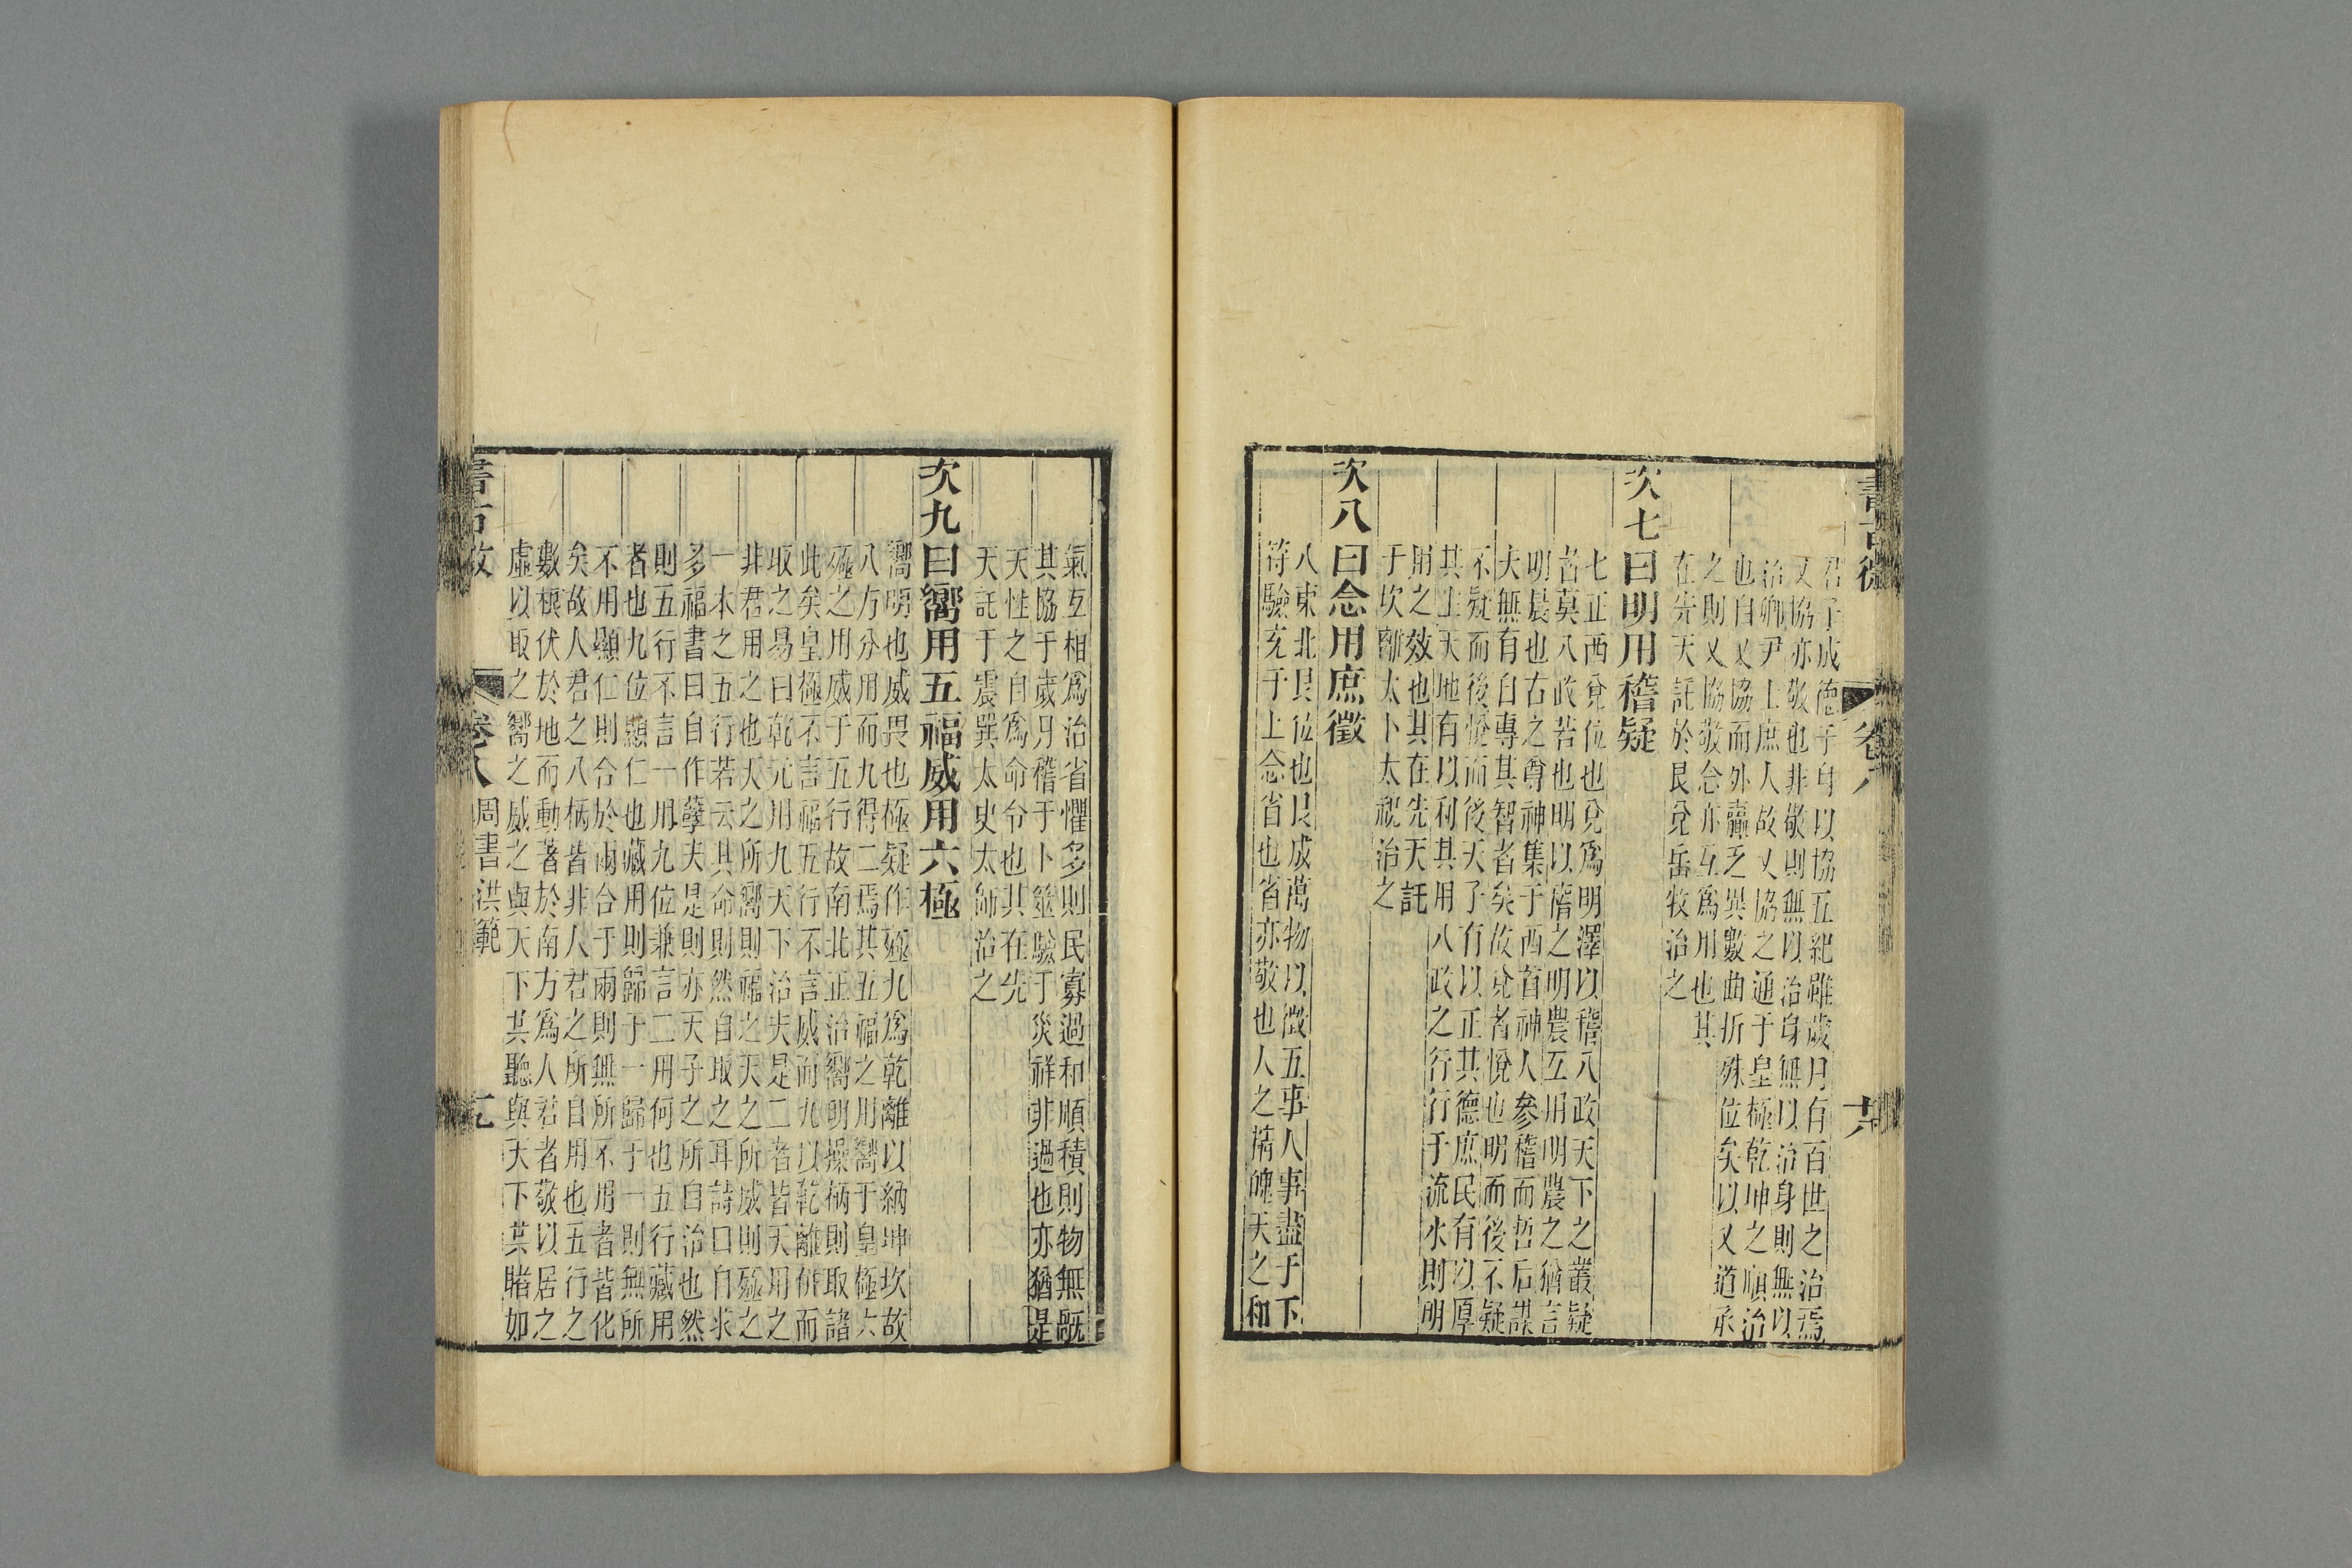 君子成德于身以協五紀雖歲月有百世之治焉
乂協亦敬也非敬則無以治身無以治身則無以
治卿尹士庶人故乂協之通于皇極乾坤之順治
也自乂協而外贏乏異數曲折殊位矣以乂道承
之則乂協敬念亦互爲用也其
在先天託於艮兌岳牧治之
次七曰明用稽疑
七正西兌位也兌爲明澤以稽八政天下之叢疑
者莫八政若也明以濟之明農互用明農之猶言
明晨也古之尊神集于西首神人參稽而哲后謀
夫無有自專其智者矣故兌者悅也明而後不疑
不疑而後悅而後天子有以正其德庶民有以厚
其生天地有以利其用八政之行行于流水則明
用之效也其在先天託
于坎離太卜太祝治之
次八曰念用庶徵
八東北艮位也艮成萬物以徵五事人事盡于下
符驗充于上念省也省亦敬也人之精魄天之和
書古微 卷八 六
氣互相爲治省懼多則民寡過和順積則物無戩
其協于歲月稽于卜筮驗于災祥非過也亦猶是
天性之自爲命令也其在先
天託于震巽太史太師治之
次九曰嚮用五福威用六極
嚮明也威畏也極疑作殛九爲乾離以納坤坎故
八方分用而九得二焉其五福之用嚮于皇極六
殛之用威于五行故南北正治嚮明操柄則取諸
此矣皇極不言福五行不言威而九以乾離併而
取之易曰乾元用九天下治夫是二者皆天用之
非君用之也天之所嚮則福之天之所威則殛之
一本之五行若云其命則然自取之耳詩曰自求
多福書曰自作孽夫是則亦天子之所自治也然
則五行不言一用九位兼言二用何也五行藏用
者也九位顯仁也藏用則歸于一歸于一則無所
不用顯仁則合於兩合于兩則無所不用者皆化
矣故人君之八柄皆非人君之所自用也五行之
數櫝伏於地而動著於南方爲人君者敬以居之
虛以取之嚮之威之與天下共聽與天下共睹如
卷八 周書洪範